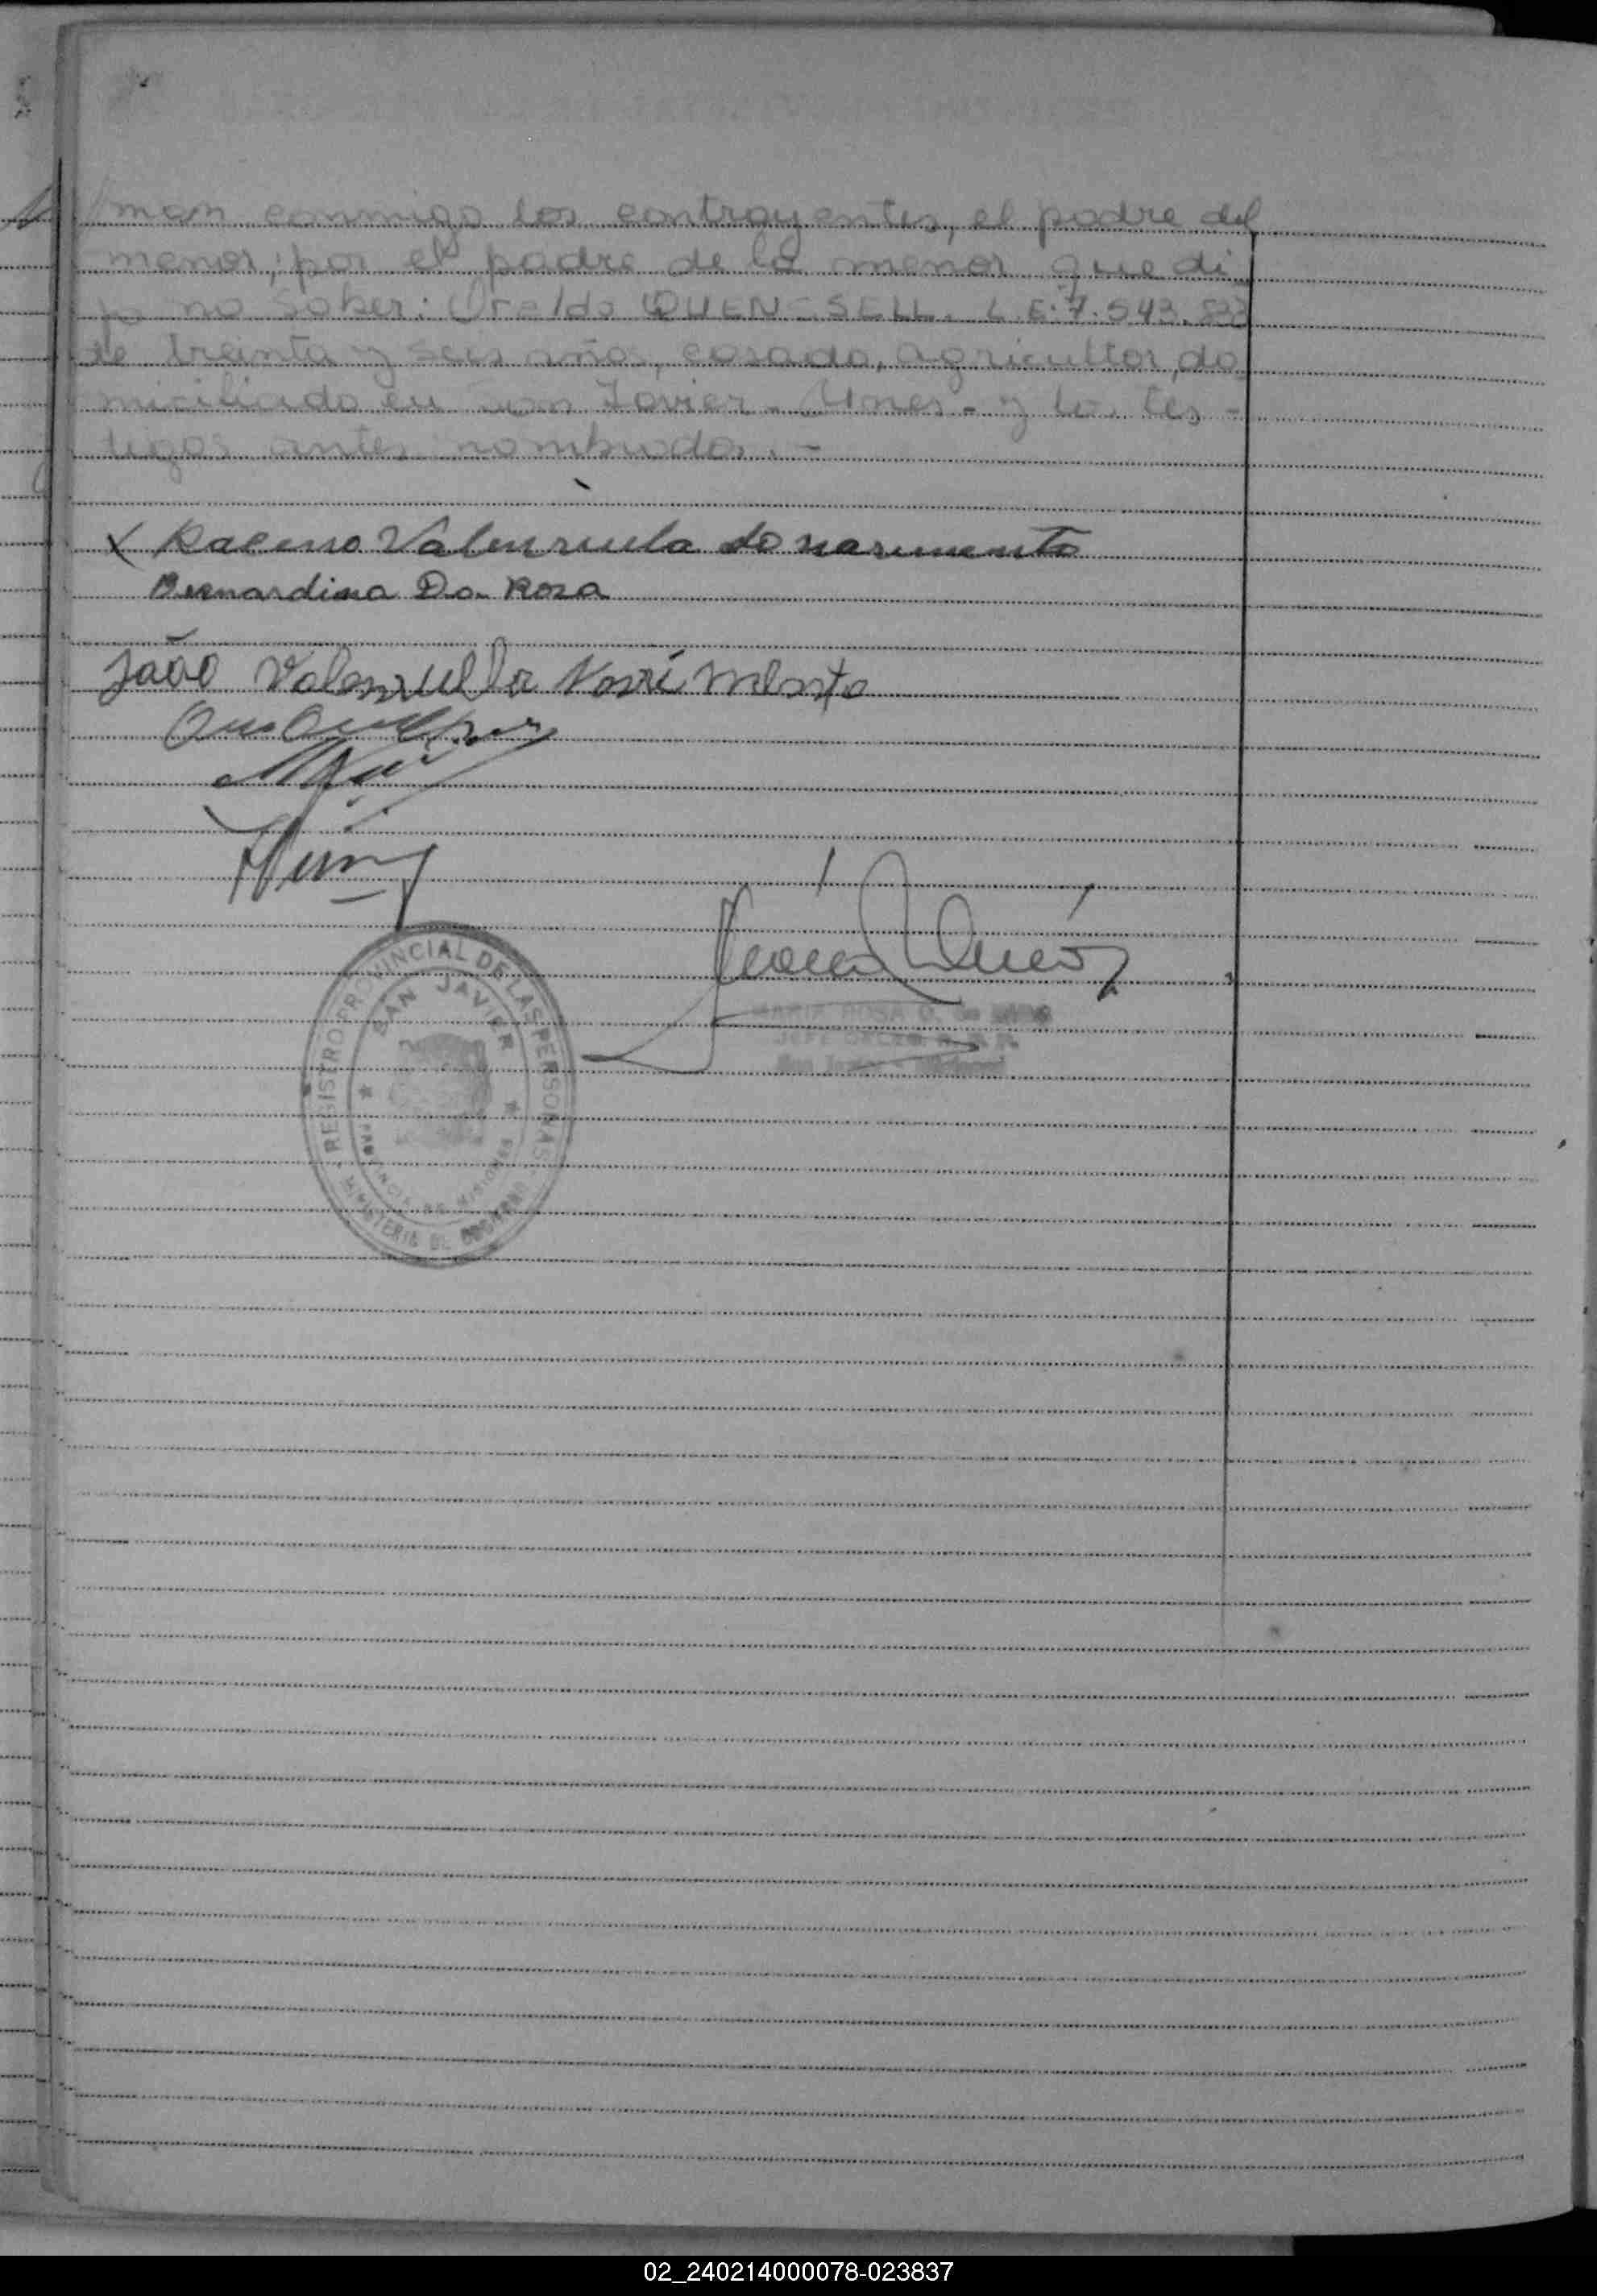 man conmigo los contrayentes, el padre del
menor; por el padre de la menor que di
jo no saber: Oraldo QUENSSELL. L.E: 7.543.
de treinta y seis años, casado, agricultor, do
miciliado en San Javier - Mnes - y los tes -
tigos antes nombrados. -
X Valenzuela do nascimento
Bernardina Da Roza
João Valenzuella Nassimento
REGISTRO PROVINCIAL DE LAS PERSONAS
SAN JAVIER
PROVINCIA DE MISIONES
MINISTERIO DE GOBIERNO
MARIA ROSA D. de
JEFE
San Javier - Misiones
02_240214000078-023837